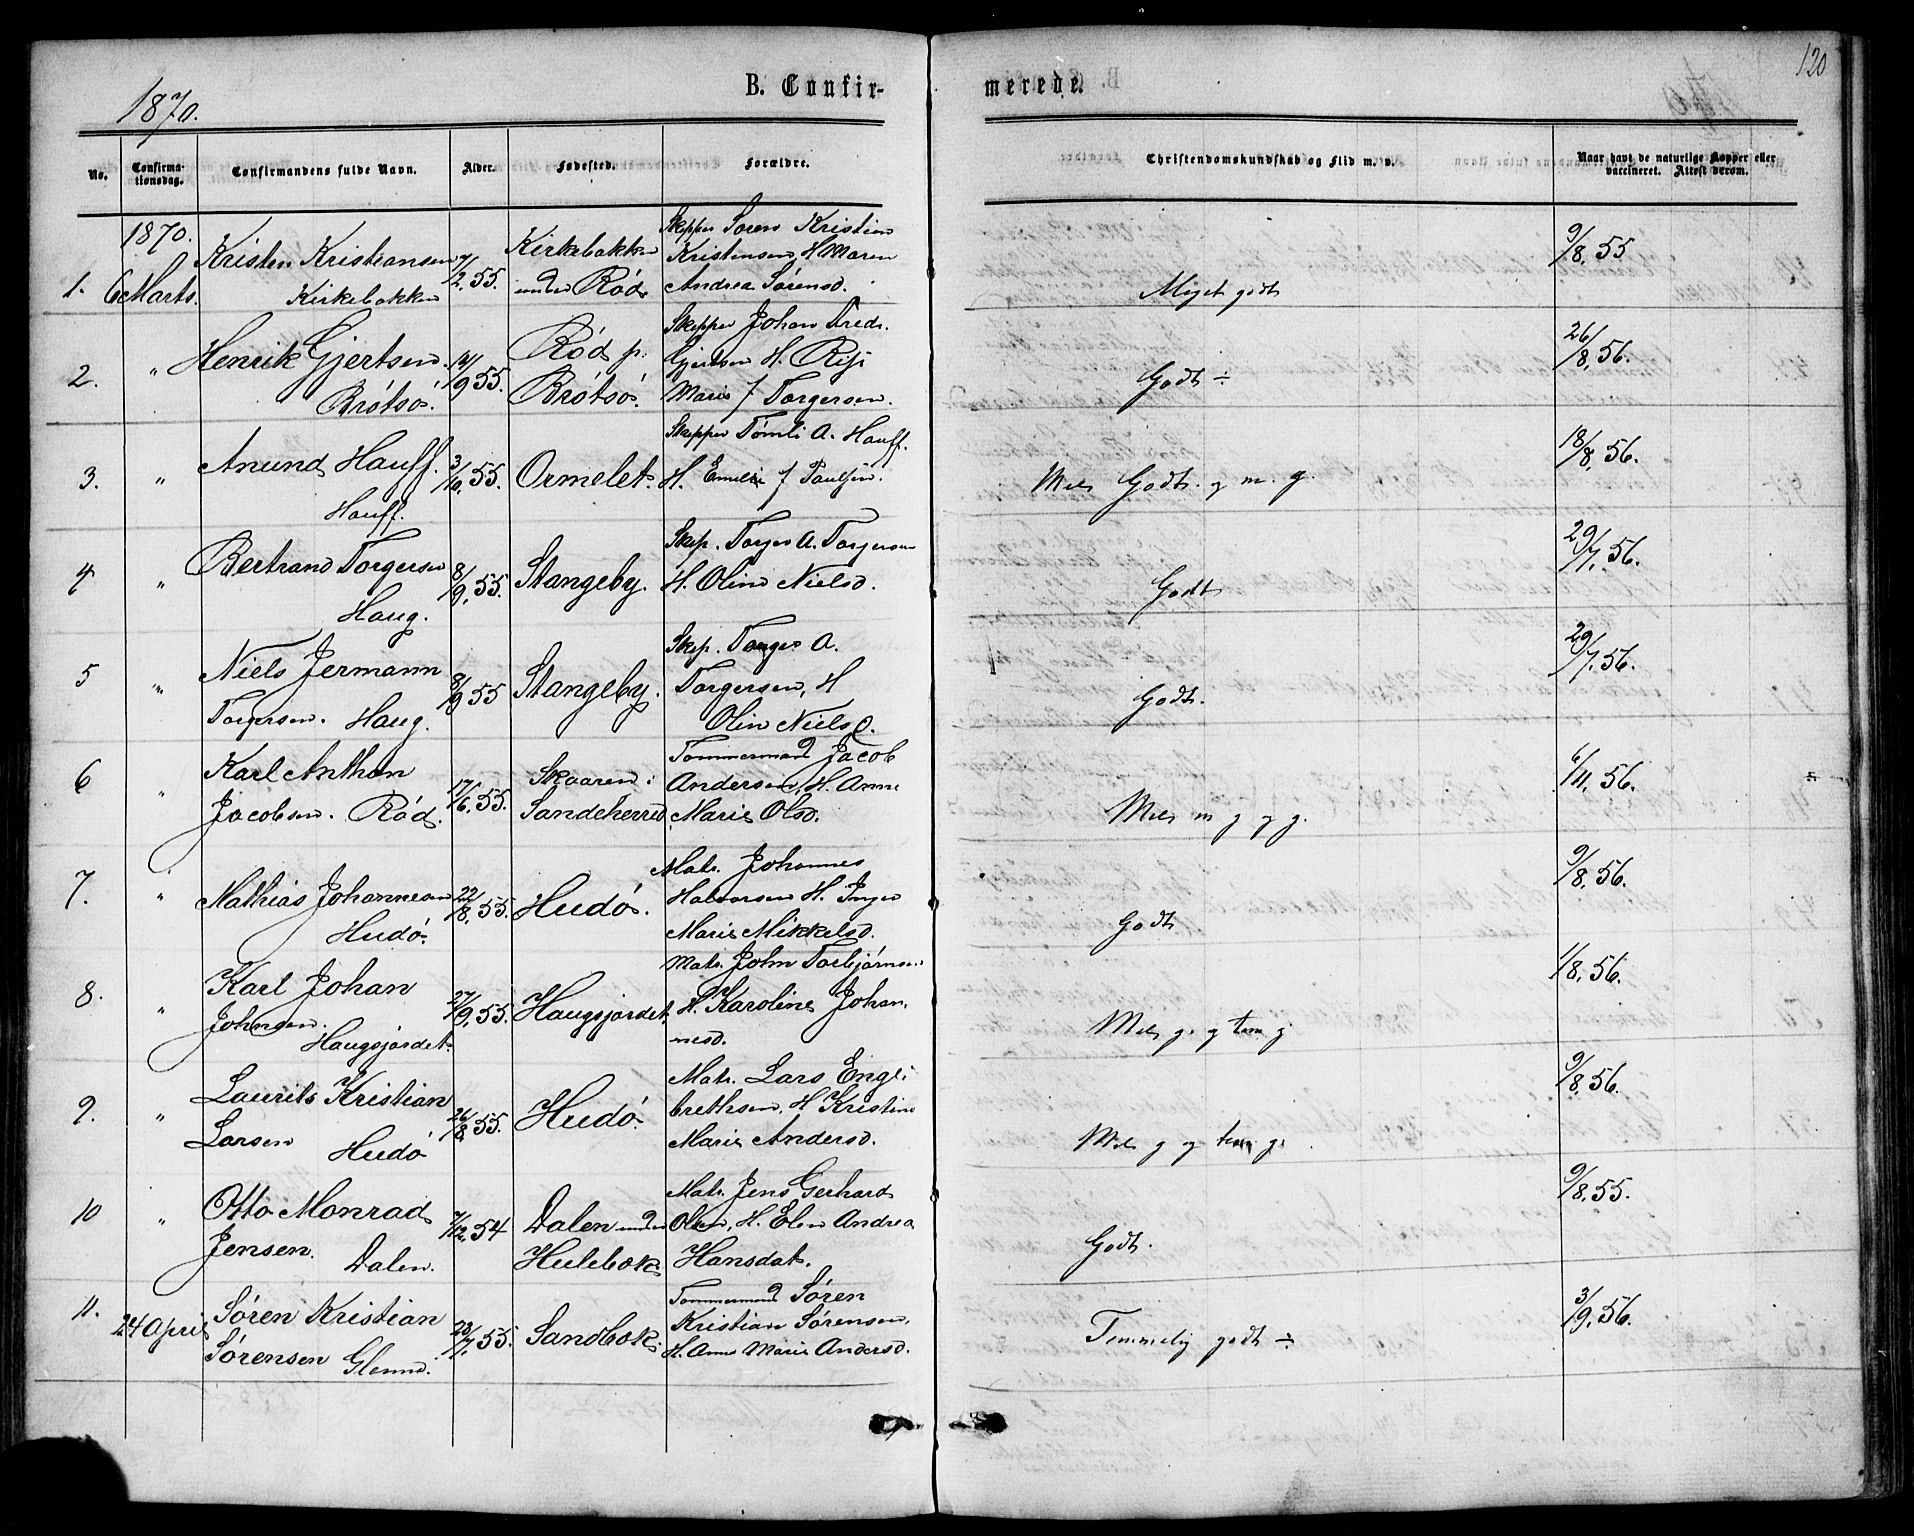 120
1870.
B. Confirmerede.
No. Confirmationsdag. Confirmandens fulde Navn. Alder. Fødested. Forældre. Christendomskundskab og Flid m. v. Naar havt de naturlige Kopper eller vaccineret. Attest derom.
1870.
1. 6 Marts. Kristen Kristiansen Kirkebakken 7/2 55. Kirkebakken under Rød. Skipper Søren Kristian Kristensen H. Maren Andrea Sørensd. Meget godt 9/8, 55
2. " Henrik Gjertsen. Brøtsø. /9 55. Rød p. Brøtsø. Skipper Johan Fredr. Gjertsen H. Marie f Torgersen. Godt ÷ 26/8, 56.
3. " Anund Hauff. Hauff. 3/10, 55. Ormelet. Skipper Tømli A. Hauff. H. Emelie f Paulsen. Mel. Godt. g m. g. 18/8, 56.
4 " Bertrand Torgersen Haug. 8/9, 55. Stangeby. Skip. Torger A. Torgersen H. Olin Nielsd. Godt 29/7, 56.
5 " Niels Jermann Torgersen. Haug. 8/9 55 Stangeby. Skip. Torger A. Torgersen, H Olin Nielsd. Godt. 29/7, 56.
6 " Karl Anthon Jacobsen. Rød. 17/6, 55. Skaaren i Sandeherred Tømmermand Jacob Andersen, H. Anne Marie Olsd. Mel. m g og g. 6/11, 56.
7. " Mathias Johannesen Hudø. 22/8, 55. Hudø. Matr. Johannes Halvorsen H. Inger Marie Mikkelsd. Godt 9/8, 56.
8. " Karl Johan Johnsen. Haugsjordet. 27/9, 55. Haugsjordet. Matr. John Torbjørnsen H. Karoline Johannesd. Mel. g. g tem g. 1/8, 56.
9. " Laurits Kristian Larsen Hudø 26/8, 55. Hudø. Matr. Lars Engebrethsen, H Kristine Marie Andersd. Mel. g g tem g. 9/8, 56.
10 " Otto Monrad Jensen. Dalen. 7/12, 54 Dalen under Hulebak. Matr. Jens Gerhard Olsen, H. Elen Andrea Hansdat. Godt. 9/8, 55.
11. 24 April Søren Kristian Sørensen Glenne. 23/7, 55. Sandbok. Tømmermand Søren Kristian Sørensen, H. Anne Marie Andersd. Temmelig godt ÷ 3/9, 56.